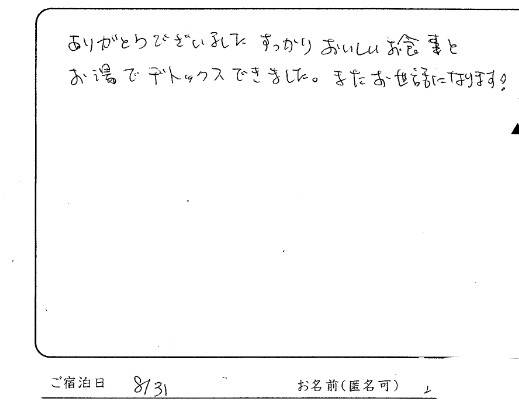 ありがとうございました すっかりおいしいお食事と
お湯でデトックスできました。またお世話になります!
ご宿泊日 8/31 お名前(匿名可)